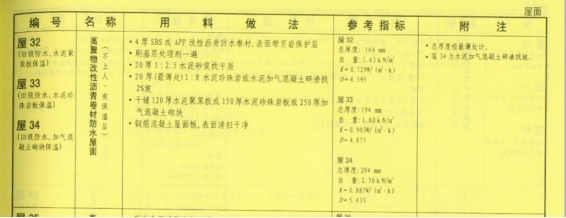 屋面
编号 名称 用料做法 参考指标 附注
屋 32
(Ⅱ级防水,水泥聚
苯板保温)
屋 33
(Ⅱ级防水,水泥珍珠
岩板保温)
屋 34
(Ⅱ级防水,加气混
凝土砌块保温)
高聚物改性沥青卷材防水屋面
(不上人,有保温层)
• 4厚SBS或APP改性沥青防水卷材,表面带页岩保护层
• 刷基层处理剂一遍
• 20厚1:2.5水泥砂浆找平层
• 20厚(最薄处)1:8水泥珍珠岩或水泥加气混凝土碎渣找
2%坡
• 干铺120厚水泥聚苯板或150厚水泥珍珠岩板或250厚加
气混凝土砌块
• 钢筋混凝土屋面板,表面清扫干净
屋 32
总厚度: 164 mm
自 重:1.63 kN/m²
K=0.729W/(m²·k)
D=4.593
屋 33
总厚度:194 mm
自 重:1.80 kN/m²
K=0.903W/(m²·k)
D=4.875
屋 34
总厚度:294 mm
自 重:2.70 kN/m²
K=0.887W/(m²·k)
D=5.433
• 总厚度按最薄处计。
• 屋34为水泥加气混凝土碎渣找坡。
屋 35